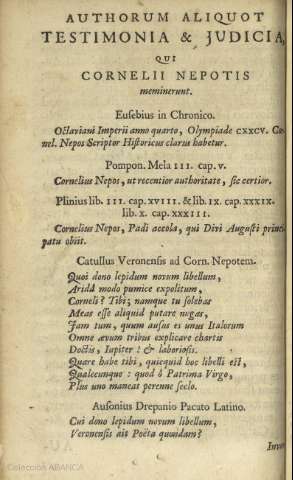 AUTHORUM ALIQUOT
TESTIMONIA & JUDICIA,
QUI
CORNELII NEPOTIS
meminerunt.
Eusebius in Chronico.
Octaviani Imperii anno quarto, Olympiade CXXCV. Cor-
nel. Nepos Scriptor Historicus clarus habetur.
Pompon. Mela III. cap. V.
Cornelius Nepos, ut recentior authoritate, sic certior.
Plinius lib. III. cap. XVIII. & lib. IX. cap. XXXIX.
lib. X. cap. XXXIII.
Cornelius Nepos, Padi accola, qui Divi Augusti princi-
patu obiit.
Catullus Veronensis ad Corn. Nepotem.
Quoi dono lepidum novum libellum,
Aridâ modo pumice expolitum,
Corneli? Tibi; namque tu solebas
Meas esse aliquid putare nugas,
Jam tum, quum ausus es unus Italorum
Omne ævum tribus explicare chartis
Doctis, Jupiter! & laboriosis.
Quare habe tibi, quicquid hoc libelli est,
Qualecunque: quod ô Patrima Virgo,
Plus uno maneat perenne seclo.
Ausonius Drepanio Pacato Latino.
Cui dono lepidum novum libellum,
Veronensis ait Poëta quondam?
Inven-
Colección ABANCA